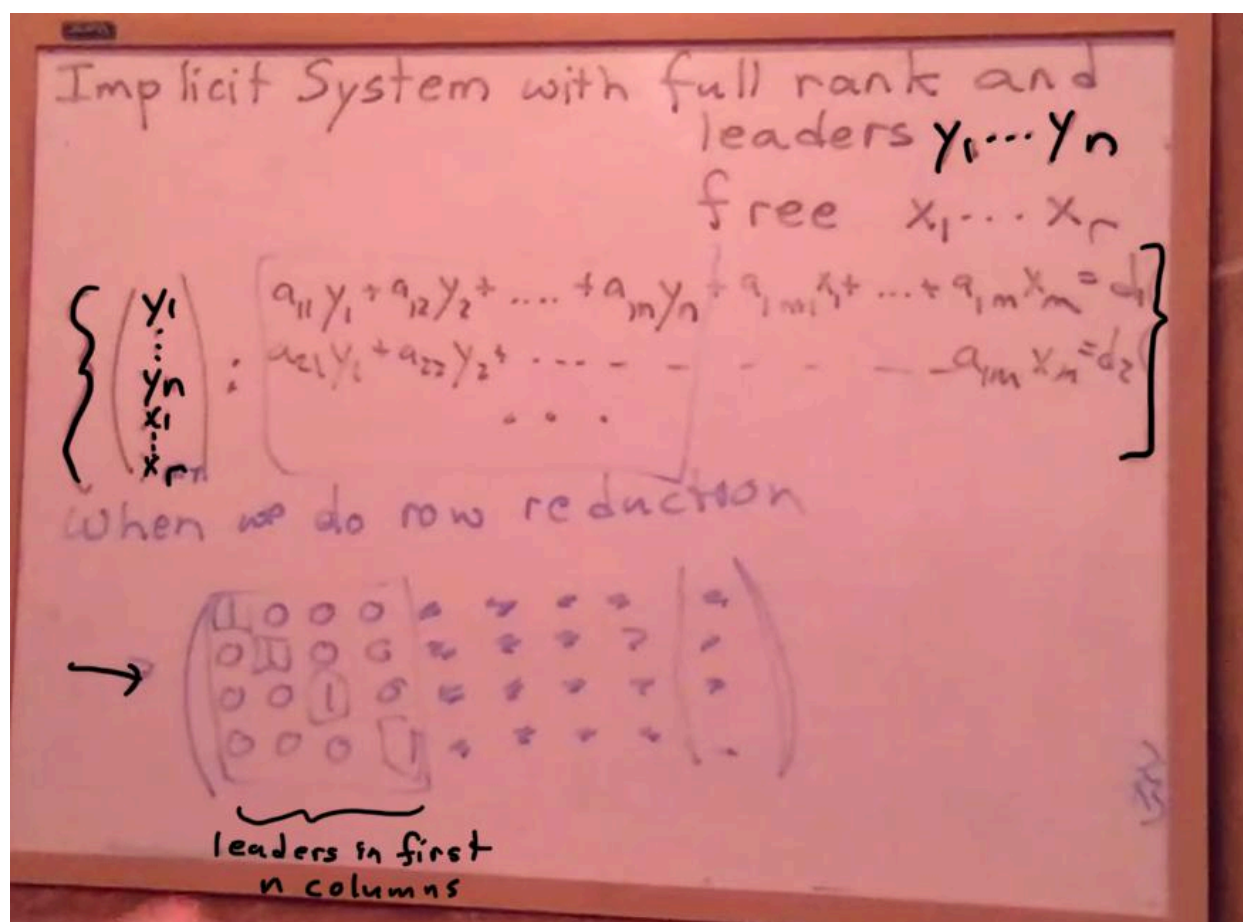 Implicit System with full rank and
leaders y₁ ... yₙ
free x₁ ... xᵣ
{ ( y₁ ⋮ yₙ x₁ ⋮ xᵣ ) :
a₁₁y₁ + a₁₂y₂ + .... + a₁ₙyₙ + a₁ₘ₁x₁ + ... + a₁ₘxₘ = d₁ }
a₂₁y₁ + a₂₂y₂ + ... - - - - - - a₁ₘxₙ = d₂
. . .
When we do row reduction
1 0 0 0 * * * * | *
→ 0 1 0 0 * * * * | *
0 0 1 0 * * * * | *
0 0 0 1 * * * * | .
leaders in first
n columns